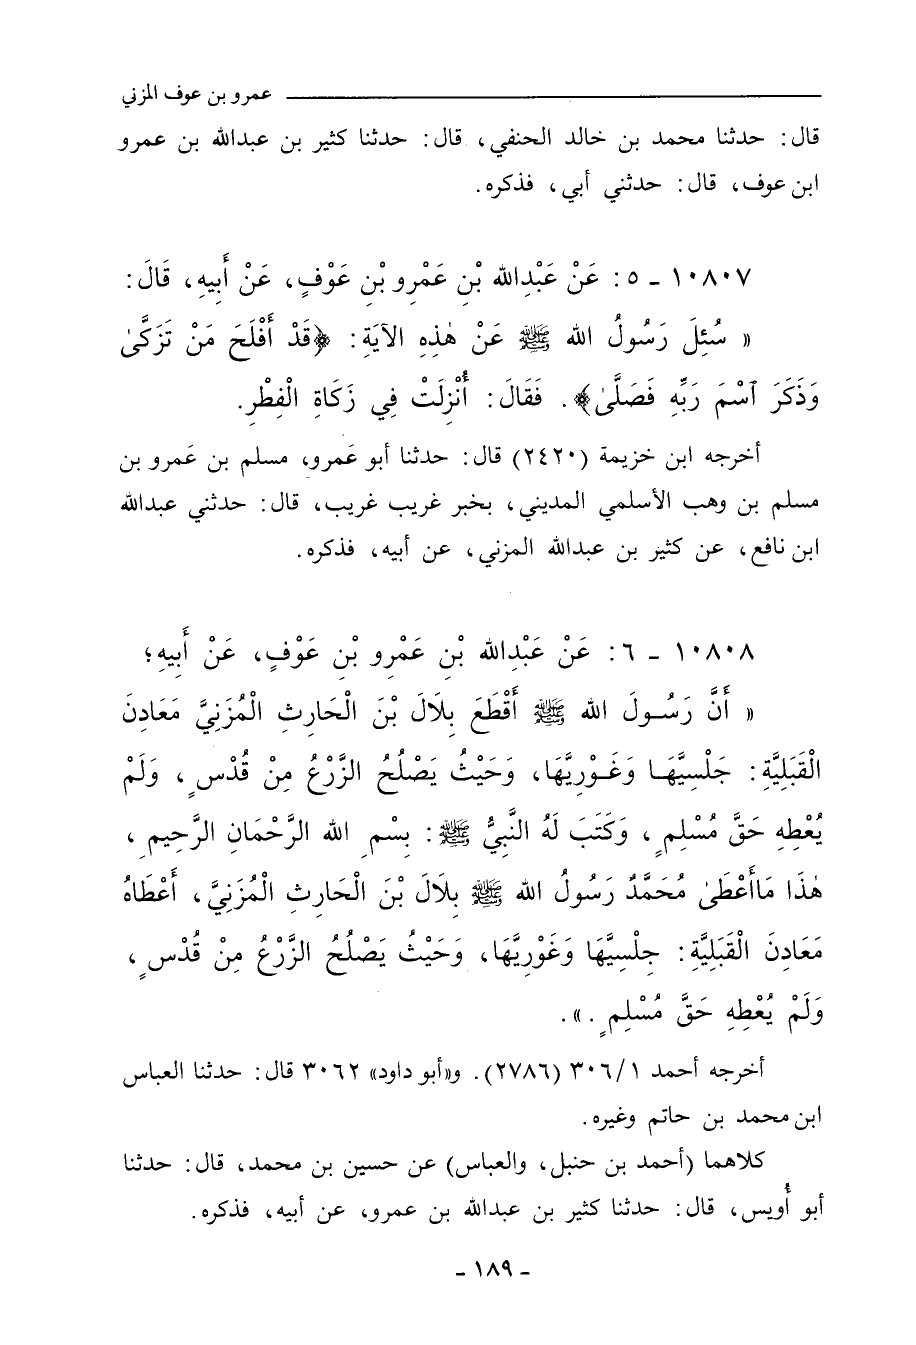 عمرو بن عوف المزني
قال: حدثنا محمد بن خالد الحنفي، قال: حدثنا كثير بن عبدالله بن عمرو
ابن عوف، قال: حدثني أبي، فذكره.
١٠٨٠٧ - ٥: عَنْ عَبْدِالله بْنِ عَمْرِو بْنِ عَوْفٍ، عَنْ أَبِيهِ، قَالَ:
« سُئِلَ رَسُولُ الله ﷺ عَنْ هٰذِهِ الآيَةِ: ﴿قَدْ أَفْلَحَ مَنْ تَزَكَّىٰ
وَذَكَرَ ٱسْمَ رَبِّهِ فَصَلَّىٰ﴾. فَقَالَ: أُنْزِلَتْ فِي زَكَاةِ الْفِطْرِ.
أخرجه ابن خزيمة (٢٤٢٠) قال: حدثنا أبو عَمرو، مسلم بن عَمرو بن
مسلم بن وهب الأسلمي المديني، بخبر غريب غريب، قال: حدثني عبدالله
ابن نافع، عن كثير بن عبدالله المزني، عن أبيه، فذكره.
١٠٨٠٨ - ٦: عَنْ عَبْدِالله بْنِ عَمْرِو بْنِ عَوْفٍ، عَنْ أَبِيهِ؛
« أَنَّ رَسُولَ الله ﷺ أَقْطَعَ بِلَالَ بْنَ الْحَارِثِ الْمُزَنِيَّ مَعَادِنَ
الْقَبَلِيَّةِ: جَلْسِيَّهَا وَغَوْرِيَّهَا، وَحَيْثُ يَصْلُحُ الزَّرْعُ مِنْ قُدْسٍ، وَلَمْ
يُعْطِهِ حَقَّ مُسْلِمٍ، وَكَتَبَ لَهُ النَّبِيُّ ﷺ: بِسْمِ الله الرَّحْمَانِ الرَّحِيمِ،
هٰذَا مَاأَعْطَىٰ مُحَمَّدٌ رَسُولُ الله ﷺ بِلَالَ بْنَ الْحَارِثِ الْمُزَنِيَّ، أَعْطَاهُ
مَعَادِنَ الْقَبَلِيَّةِ: جِلْسِيَّهَا وَغَوْرِيَّهَا، وَحَيْثُ يَصْلُحُ الزَّرْعُ مِنْ قُدْسٍ،
وَلَمْ يُعْطِهِ حَقَّ مُسْلِمٍ.».
أخرجه أحمد ٣٠٦/١ (٢٧٨٦). و«أبو داود» ٣٠٦٢ قال: حدثنا العباس
ابن محمد بن حاتم وغيره.
كلاهما (أحمد بن حنبل، والعباس) عن حسين بن محمد، قال: حدثنا
أبو أُويس، قال: حدثنا كثير بن عبدالله بن عمرو، عن أبيه، فذكره.
- ١٨٩ -